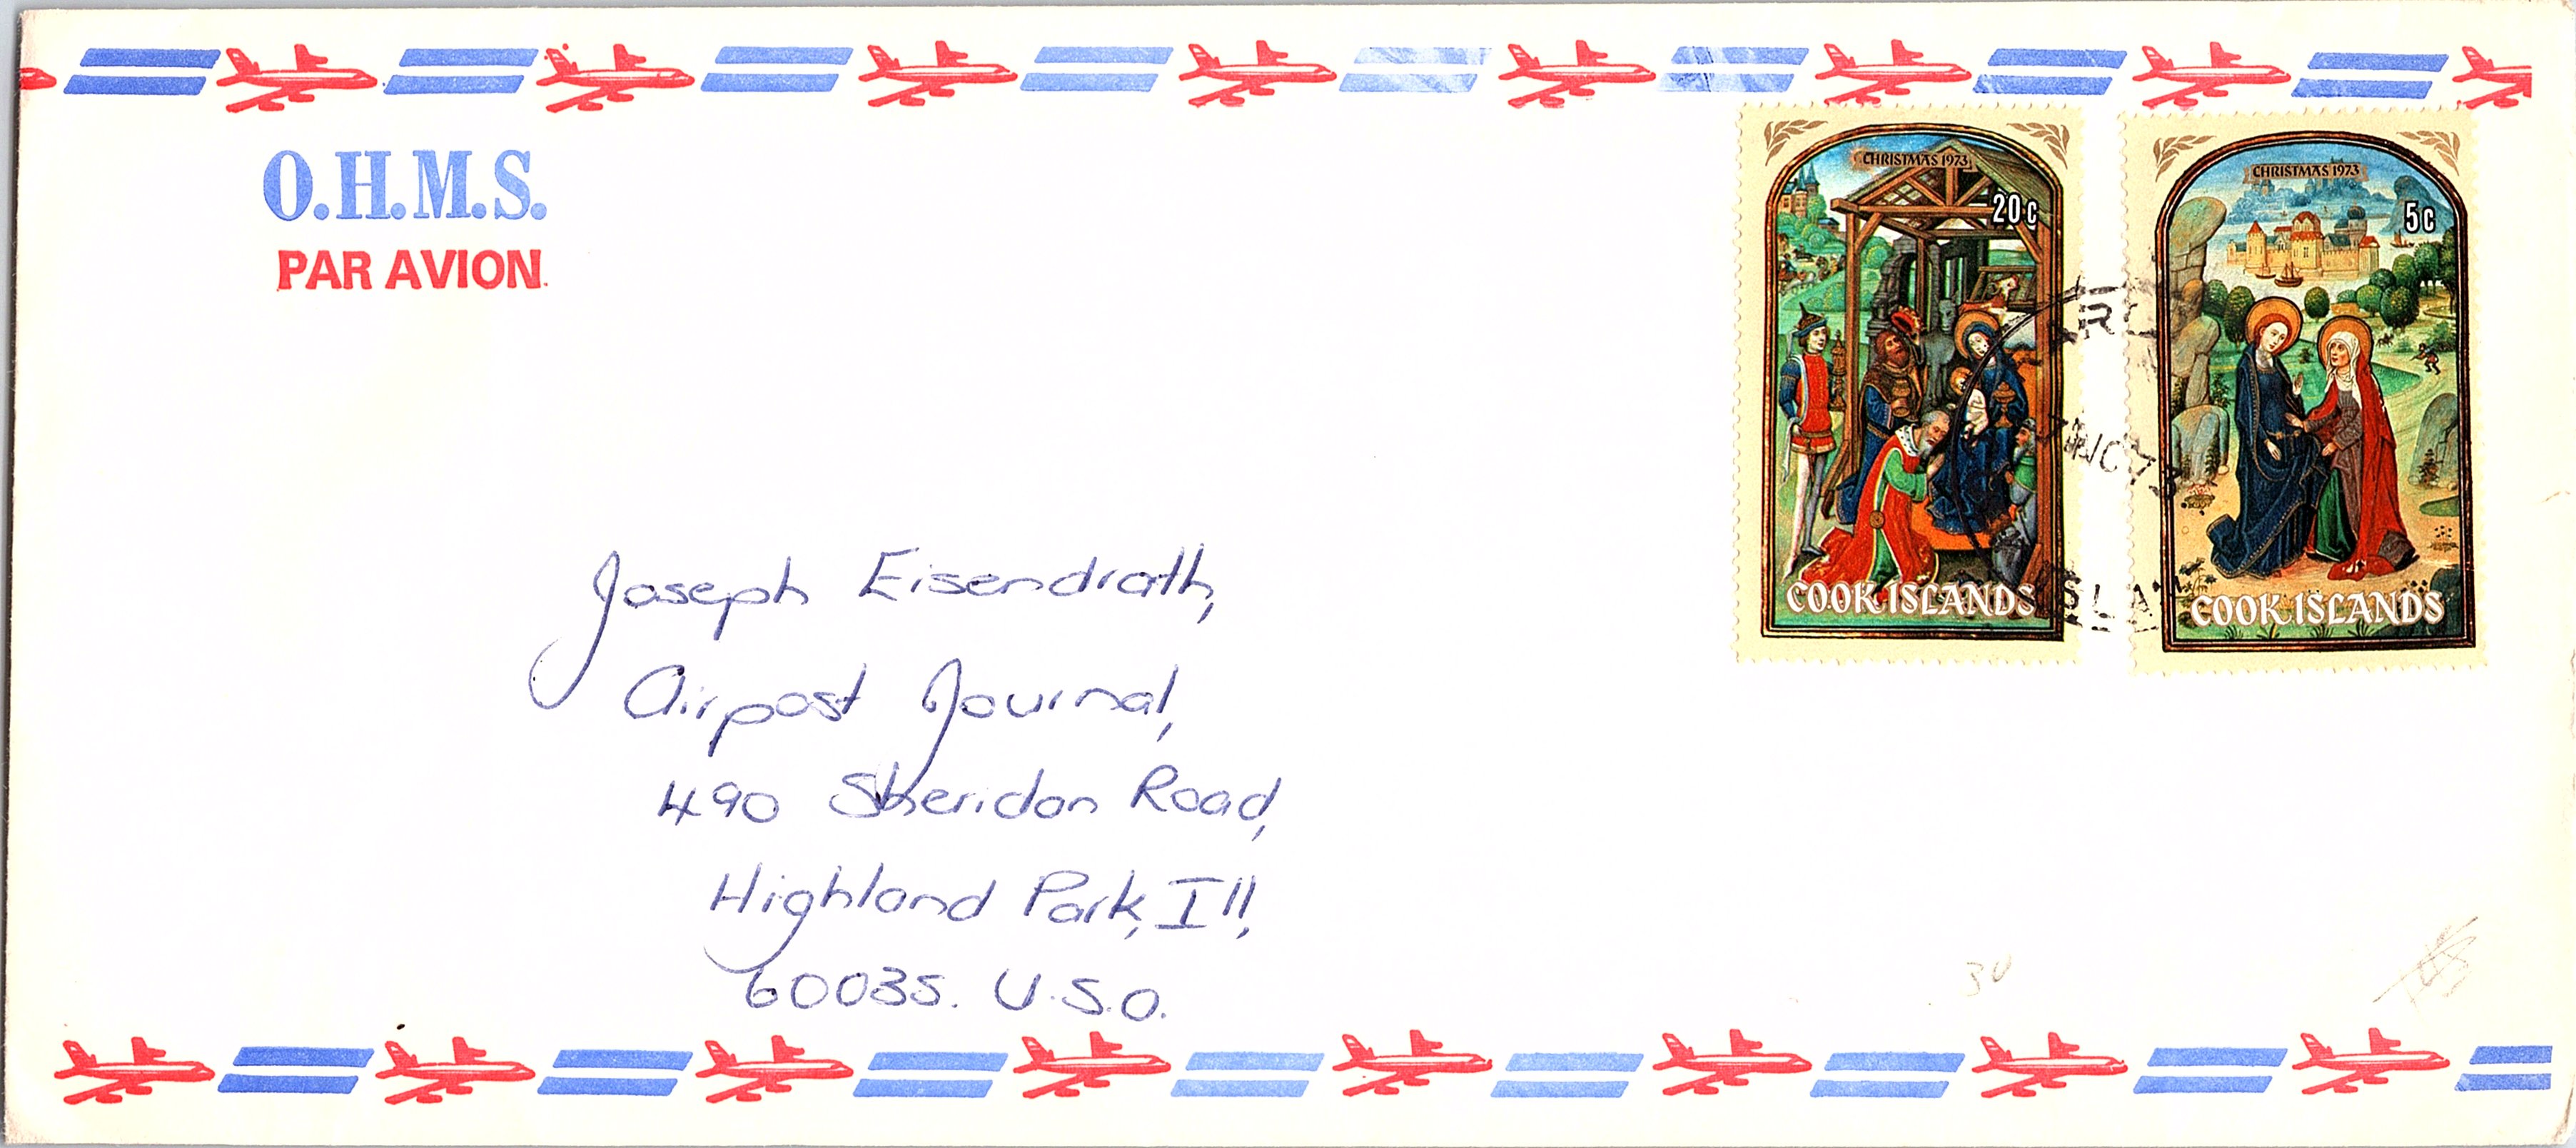 O.H.M.S.
PAR AVION.
CHRISTMAS 1973
20c
COOK ISLANDS
CHRISTMAS 1973
5c
COOK ISLANDS
Joseph Eisendrath,
Airpost Journal,
490 Sheridan Road,
Highland Park, Ill,
60035. U.S.A.